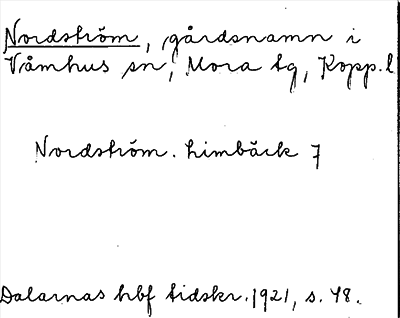 Nordström, gårdsnamn i
Våmhus sn, Mora tg, Kopp. l
Nordström. Limbäck 7
Dalarnas hbf tidskr. 1921, s. 48.